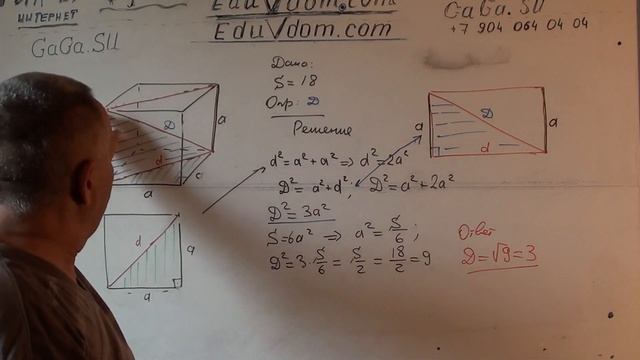 ИНТЕРНЕТ
GaGa.SU
EduVdom.com
EduVdom.com
GaGa.SU
+7 904 064 04 04
Дано:
S = 18
Опр: D
Решение
d² = a² + a² => d² = 2a²
D² = a² + d²; D² = a² + 2a²
D² = 3a²
S = 6a² => a² = S/6;
D² = 3·S/6 = S/2 = 18/2 = 9
Ответ
D = √9 = 3
D
d
a
a
c
d
a
a
a
D
d
a